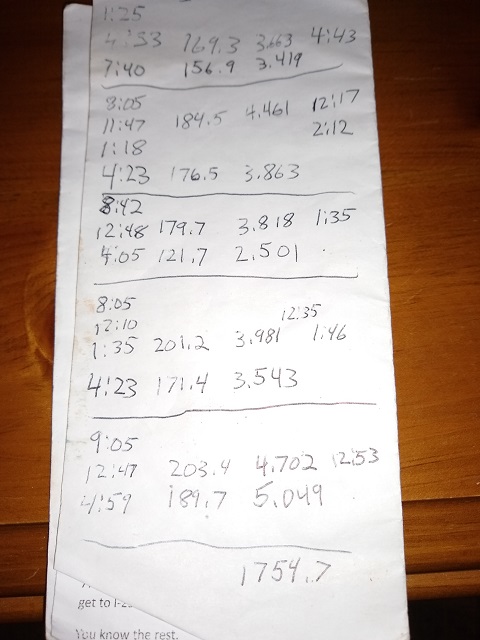 1:25
4:53 169.3 3.663 4:43
7:40 156.9 3.419
8:05
11:47 184.5 4.461 12:17
1:18 2:12
4:23 176.5 3.863
8:42
12:48 179.7 3.818 1:35
4:05 121.7 2.501
8:05
12:10 12:35
1:35 201.2 3.981 1:46
4:23 171.4 3.543
9:05
12:47 203.4 4.702 12:53
4:59 189.7 5.049
1754.7
get to I-
You know the rest.